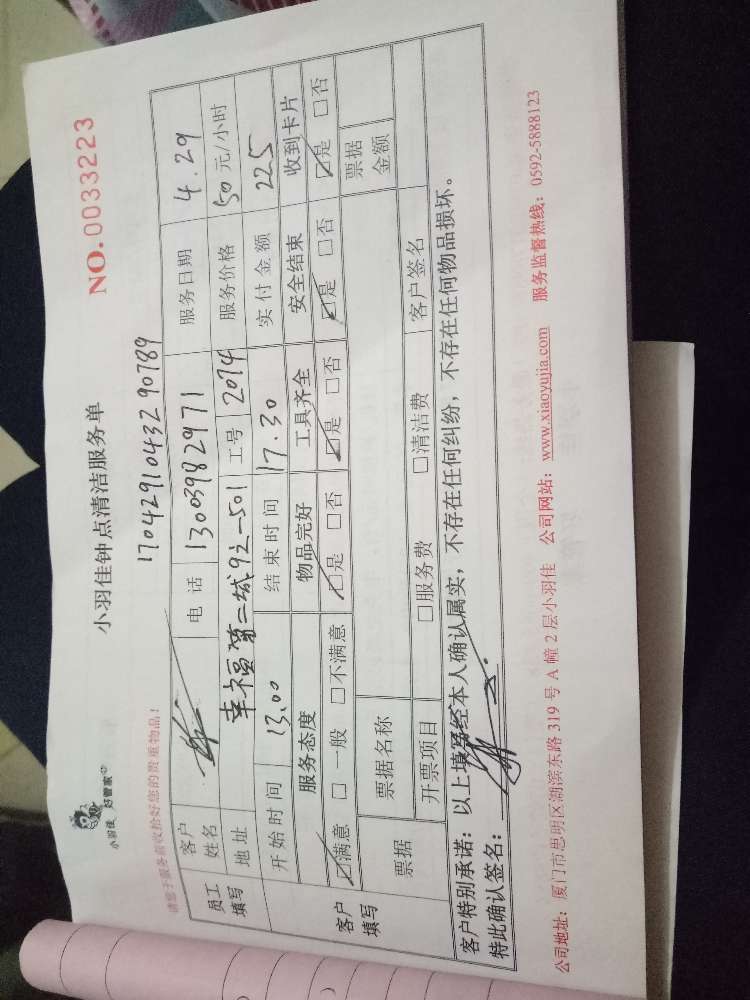 小羽佳 好管家
小羽佳钟点清洁服务单
NO.0033223
请您于服务前收拾好您的贵重物品!
1704291043290789
员工填写
客户姓名 电话 13003982971 服务日期 4.29
地址 幸福第二城92-501 工号 2014 服务价格 50 元/小时
开始时间 13.00 结束时间 17.30 实付金额 225
客户填写
服务态度 物品完好 工具齐全 安全结束 收到卡片
☑满意 □一般 □不满意 ☑是 □否 ☑是 □否 ☑是 □否 ☑是 □否
票据 票据名称 票据金额
开票项目 □服务费 □清洁费 客户签名
客户特别承诺:以上填写经本人确认属实,不存在任何纠纷,不存在任何物品损坏。
特此确认签名:
公司地址:厦门市思明区湖滨东路 319 号 A 幢 2 层小羽佳 公司网站:www.xiaoyujia.com 服务监督热线:0592-5888123